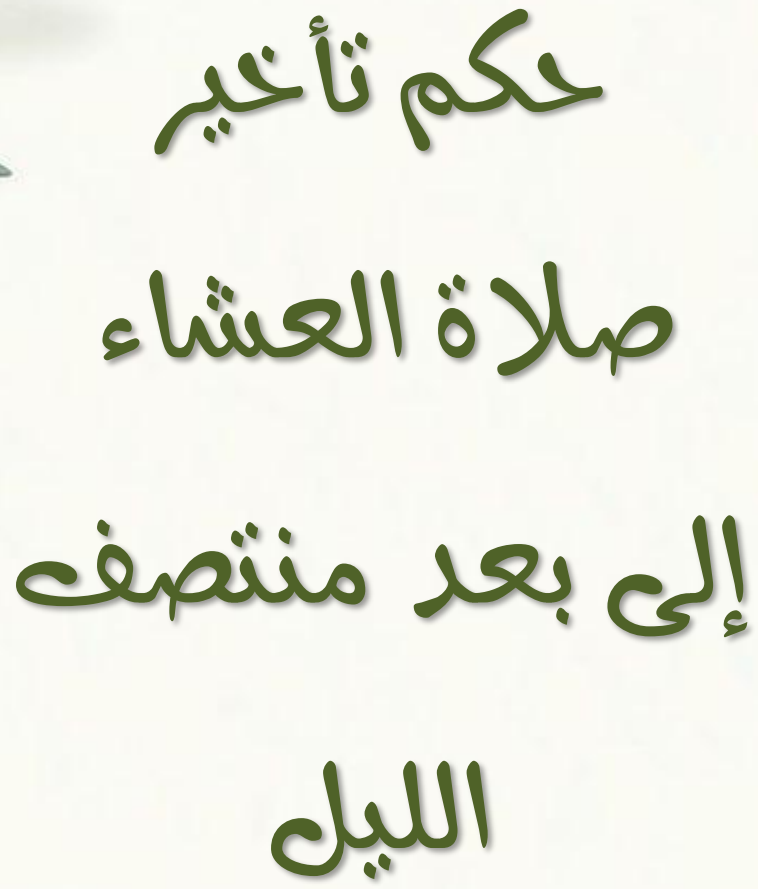 حكم تأخير
صلاة العشاء
إلى بعد منتصف
الليل